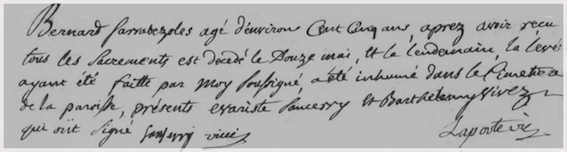 Bernard Sarrabezoles agé d'environ Cent Cinq ans, aprez avoir recu
tous les Sacrements est decedé le Douze mai, Et le lendemain, la levée
ayant été faitte par Moy Soussigné, a été inhumé dans le Cimettiere
de la paroisse, présents evariste Sancerry et Barthelemy Vivez
qui ont Signé Sancerry vivés
Laporte vic